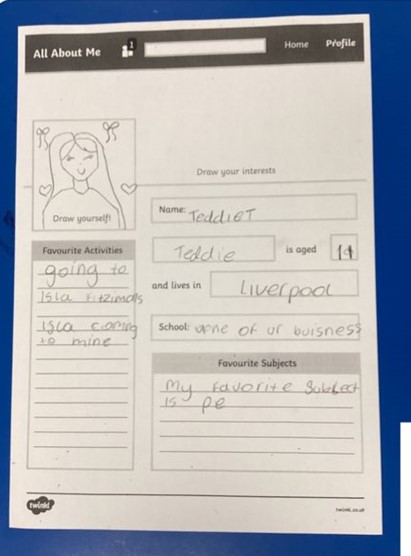 All About Me
1
Home
Profile
Draw your interests
Draw yourself!
Name: TeddieT
Teddie is aged 14
and lives in Liverpool
School: none of ur buisness
Favourite Activities
going to
Isla Fitzimons
Isla coming
to mine
Favourite Subjects
My favorite Subject
is pe
twinkl
twinkl.co.uk